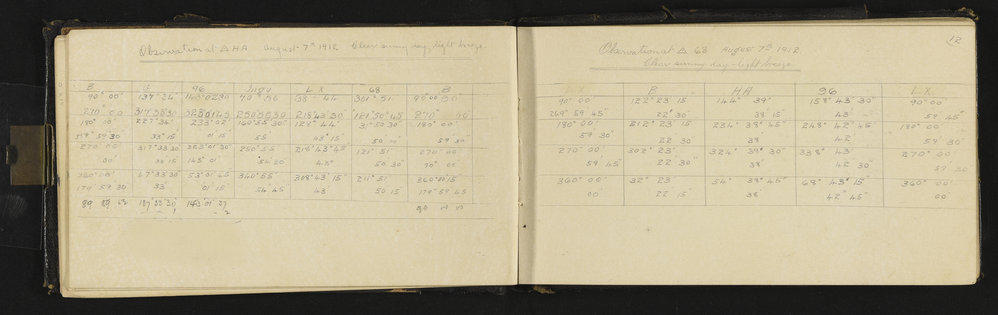 Observation at △ HA August 7th 1912 Clear sunny day, light breeze.
B G 96 Indu L X 68 B
90° 00' 137° 34' 143° 02' 30 70° 56 38° 44 301° 51'
270° 00 317° 33' 30 323° 01' 45 250° 55' 30 218° 43' 30 121° 50' 45 270° 00
180° 00' 227° 34' 233° 02' 160° 55' 30" 128° 44' 31° 50' 30" 180° 00'
359° 59' 30 33' 15 01' 15 55' 43' 15" 50 59' 30
270° 00' 317° 33' 30 323° 01' 30 250° 55 218° 43' 45 121° 51' 270° 00
00' 33' 15 143° 01' 54 30 43' 50 30" 90° 00
360° 00' 47° 33' 30 53° 01' 45 340° 55' 308° 43' 15 211° 51' 360° 00' 15
179 59 30 33' 01' 15 54 45 43 50 15 179° 59 45
89 59 137° 33' 30 143° 01' 27
12
Observation at △ 68 August 7th 1912.
Clear sunny day - light breeze.
L X B HA 96 L X
90° 00' 122° 23' 15 144° 39' 158° 43' 30" 90° 00'
269° 59' 45 22' 30" 38' 15 43' 59' 45
180° 00' 212° 23' 15 234° 38' 45" 248° 42' 45" 180° 00'
59' 30 22' 30 38' 42' 59' 30
270° 00' 302° 23' 324° 38' 30" 338° 43' 270° 00'
59' 45 22' 30" 38' 42' 30 59' 30
360° 00' 32° 23' 54° 38' 45" 68° 43' 15" 360° 00'
00' 22' 15 38' 42' 45" 00